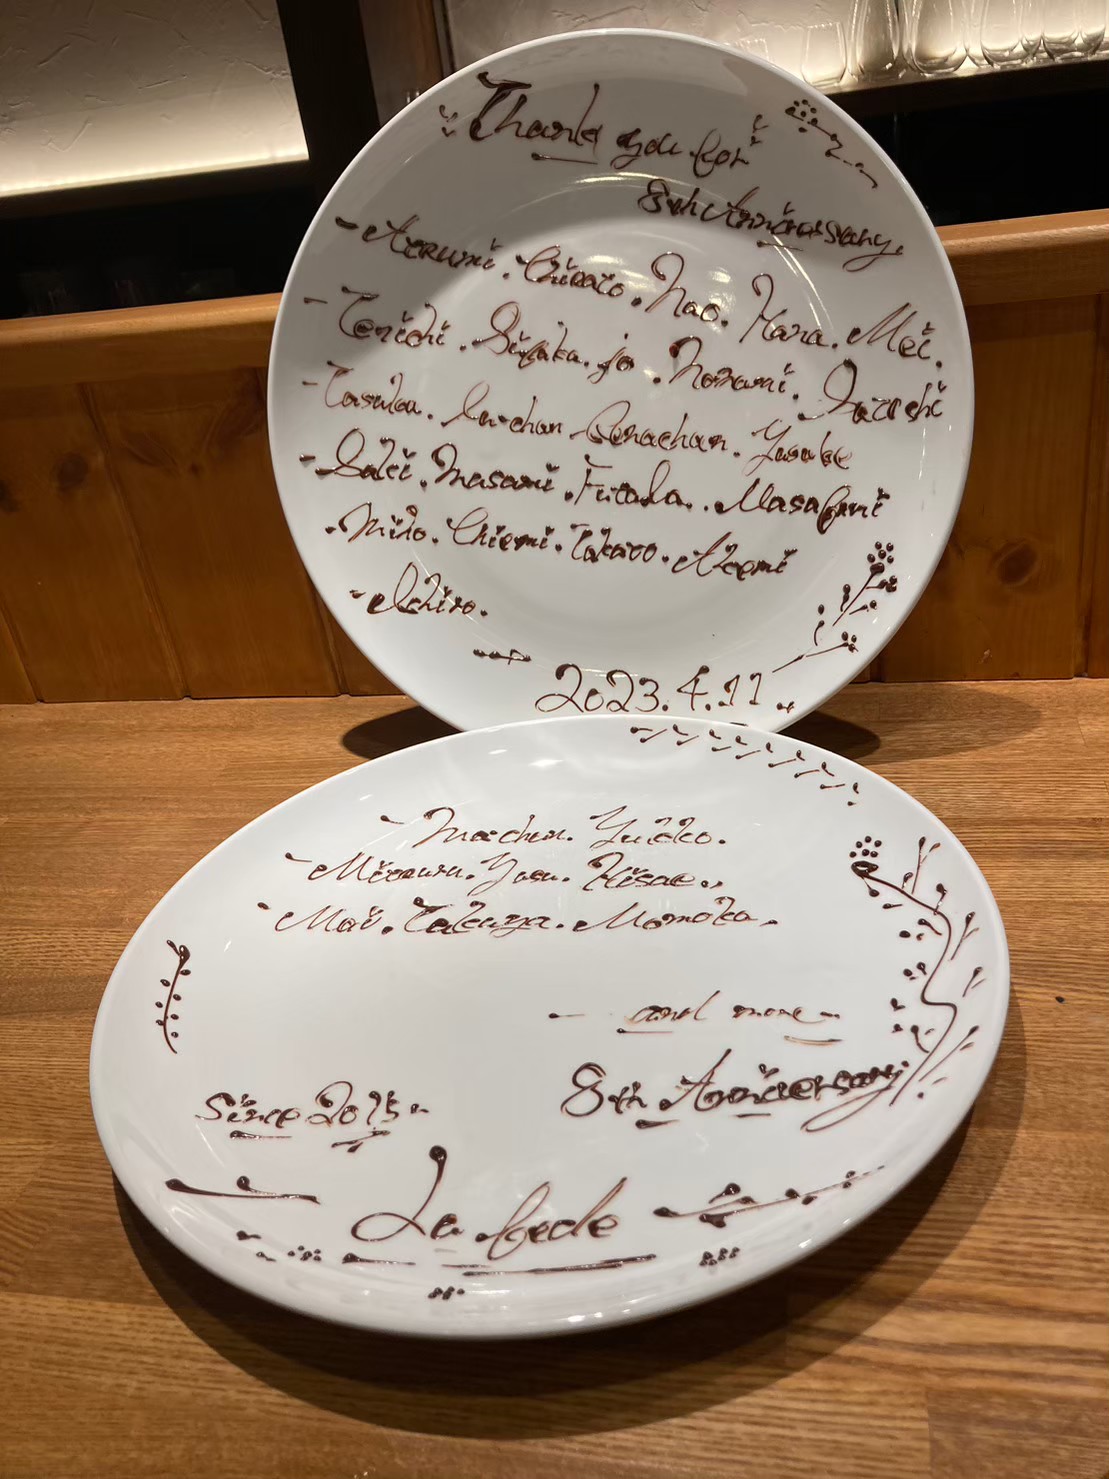 Thank you for
8th Anniversary.
- Azumi. Chisato. Nao. Hana. Mei.
- Kenichi. Shizuka. jo. Nozomi. Satoshi
- Yusuke
- Saki. Masami. Futaba. Masafumi
- Miho. Chiemi. Takaro. Azemi
- Ichiro.
2023.4.11
Ma-chan. Yukiko.
Yasu. Hisae.
- Mai. Takuya. Momoka.
- and more -
8th Anniversary
Since 2015
La fede